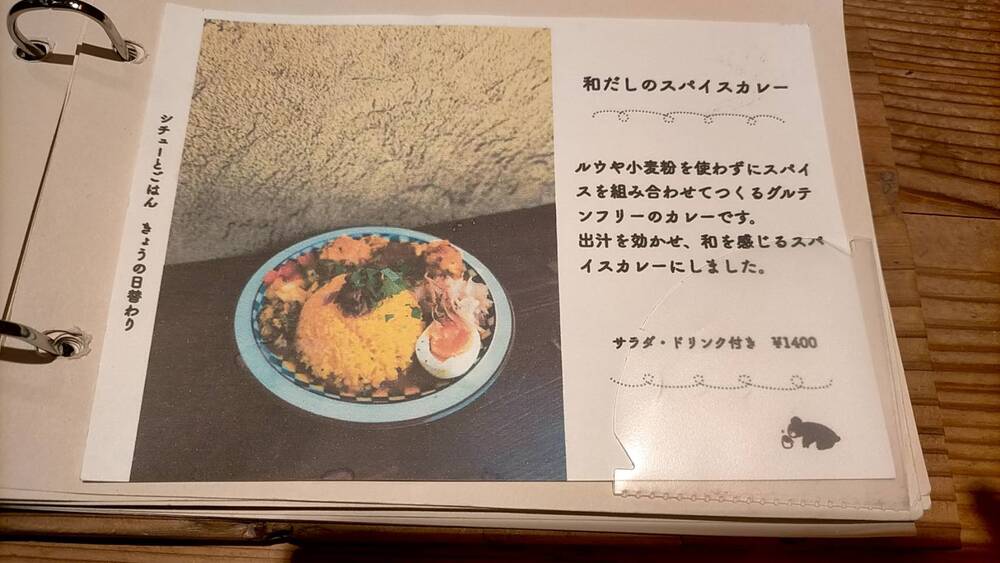 シチューとごはん きょうの日替わり
和だしのスパイスカレー
ルウや小麦粉を使わずにスパイ
スを組み合わせてつくるグルテ
ンフリーのカレーです。
出汁を効かせ、和を感じるスパ
イスカレーにしました。
サラダ・ドリンク付き ¥1400